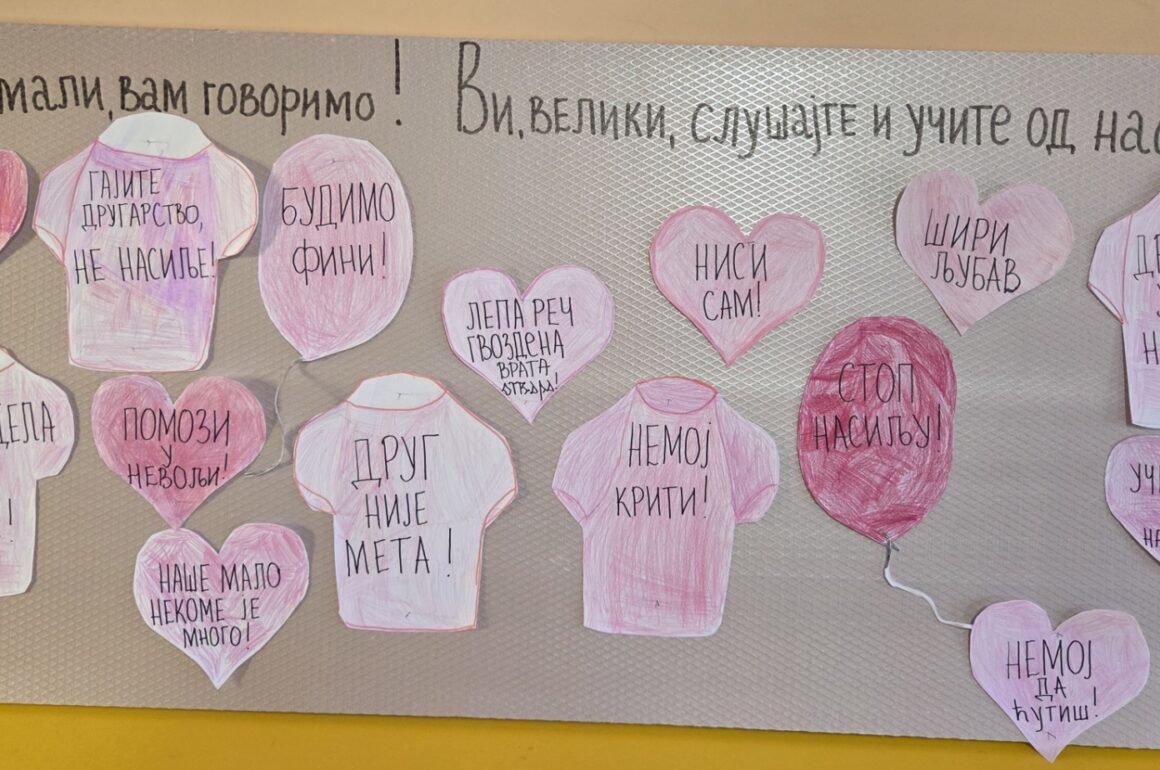 мали, вам говоримо!
Ви, велики, слушајте и учите од нас
ГАЈИТЕ
ДРУГАРСТВО,
НЕ НАСИЉЕ!
БУДИМО
ФИНИ!
ЛЕПА РЕЧ
ГВОЗДЕНА
ВРАТА
отвара!
НИСИ
САМ!
ШИРИ
ЉУБАВ
ПОМОЗИ
У
НЕВОЉИ!
ДРУГ
НИЈЕ
МЕТА!
НЕМОЈ
КРИТИ!
СТОП
НАСИЉУ!
НАШЕ МАЛО
НЕКОМЕ ЈЕ
МНОГО!
НЕМОЈ
ДА
ЋУТИШ!